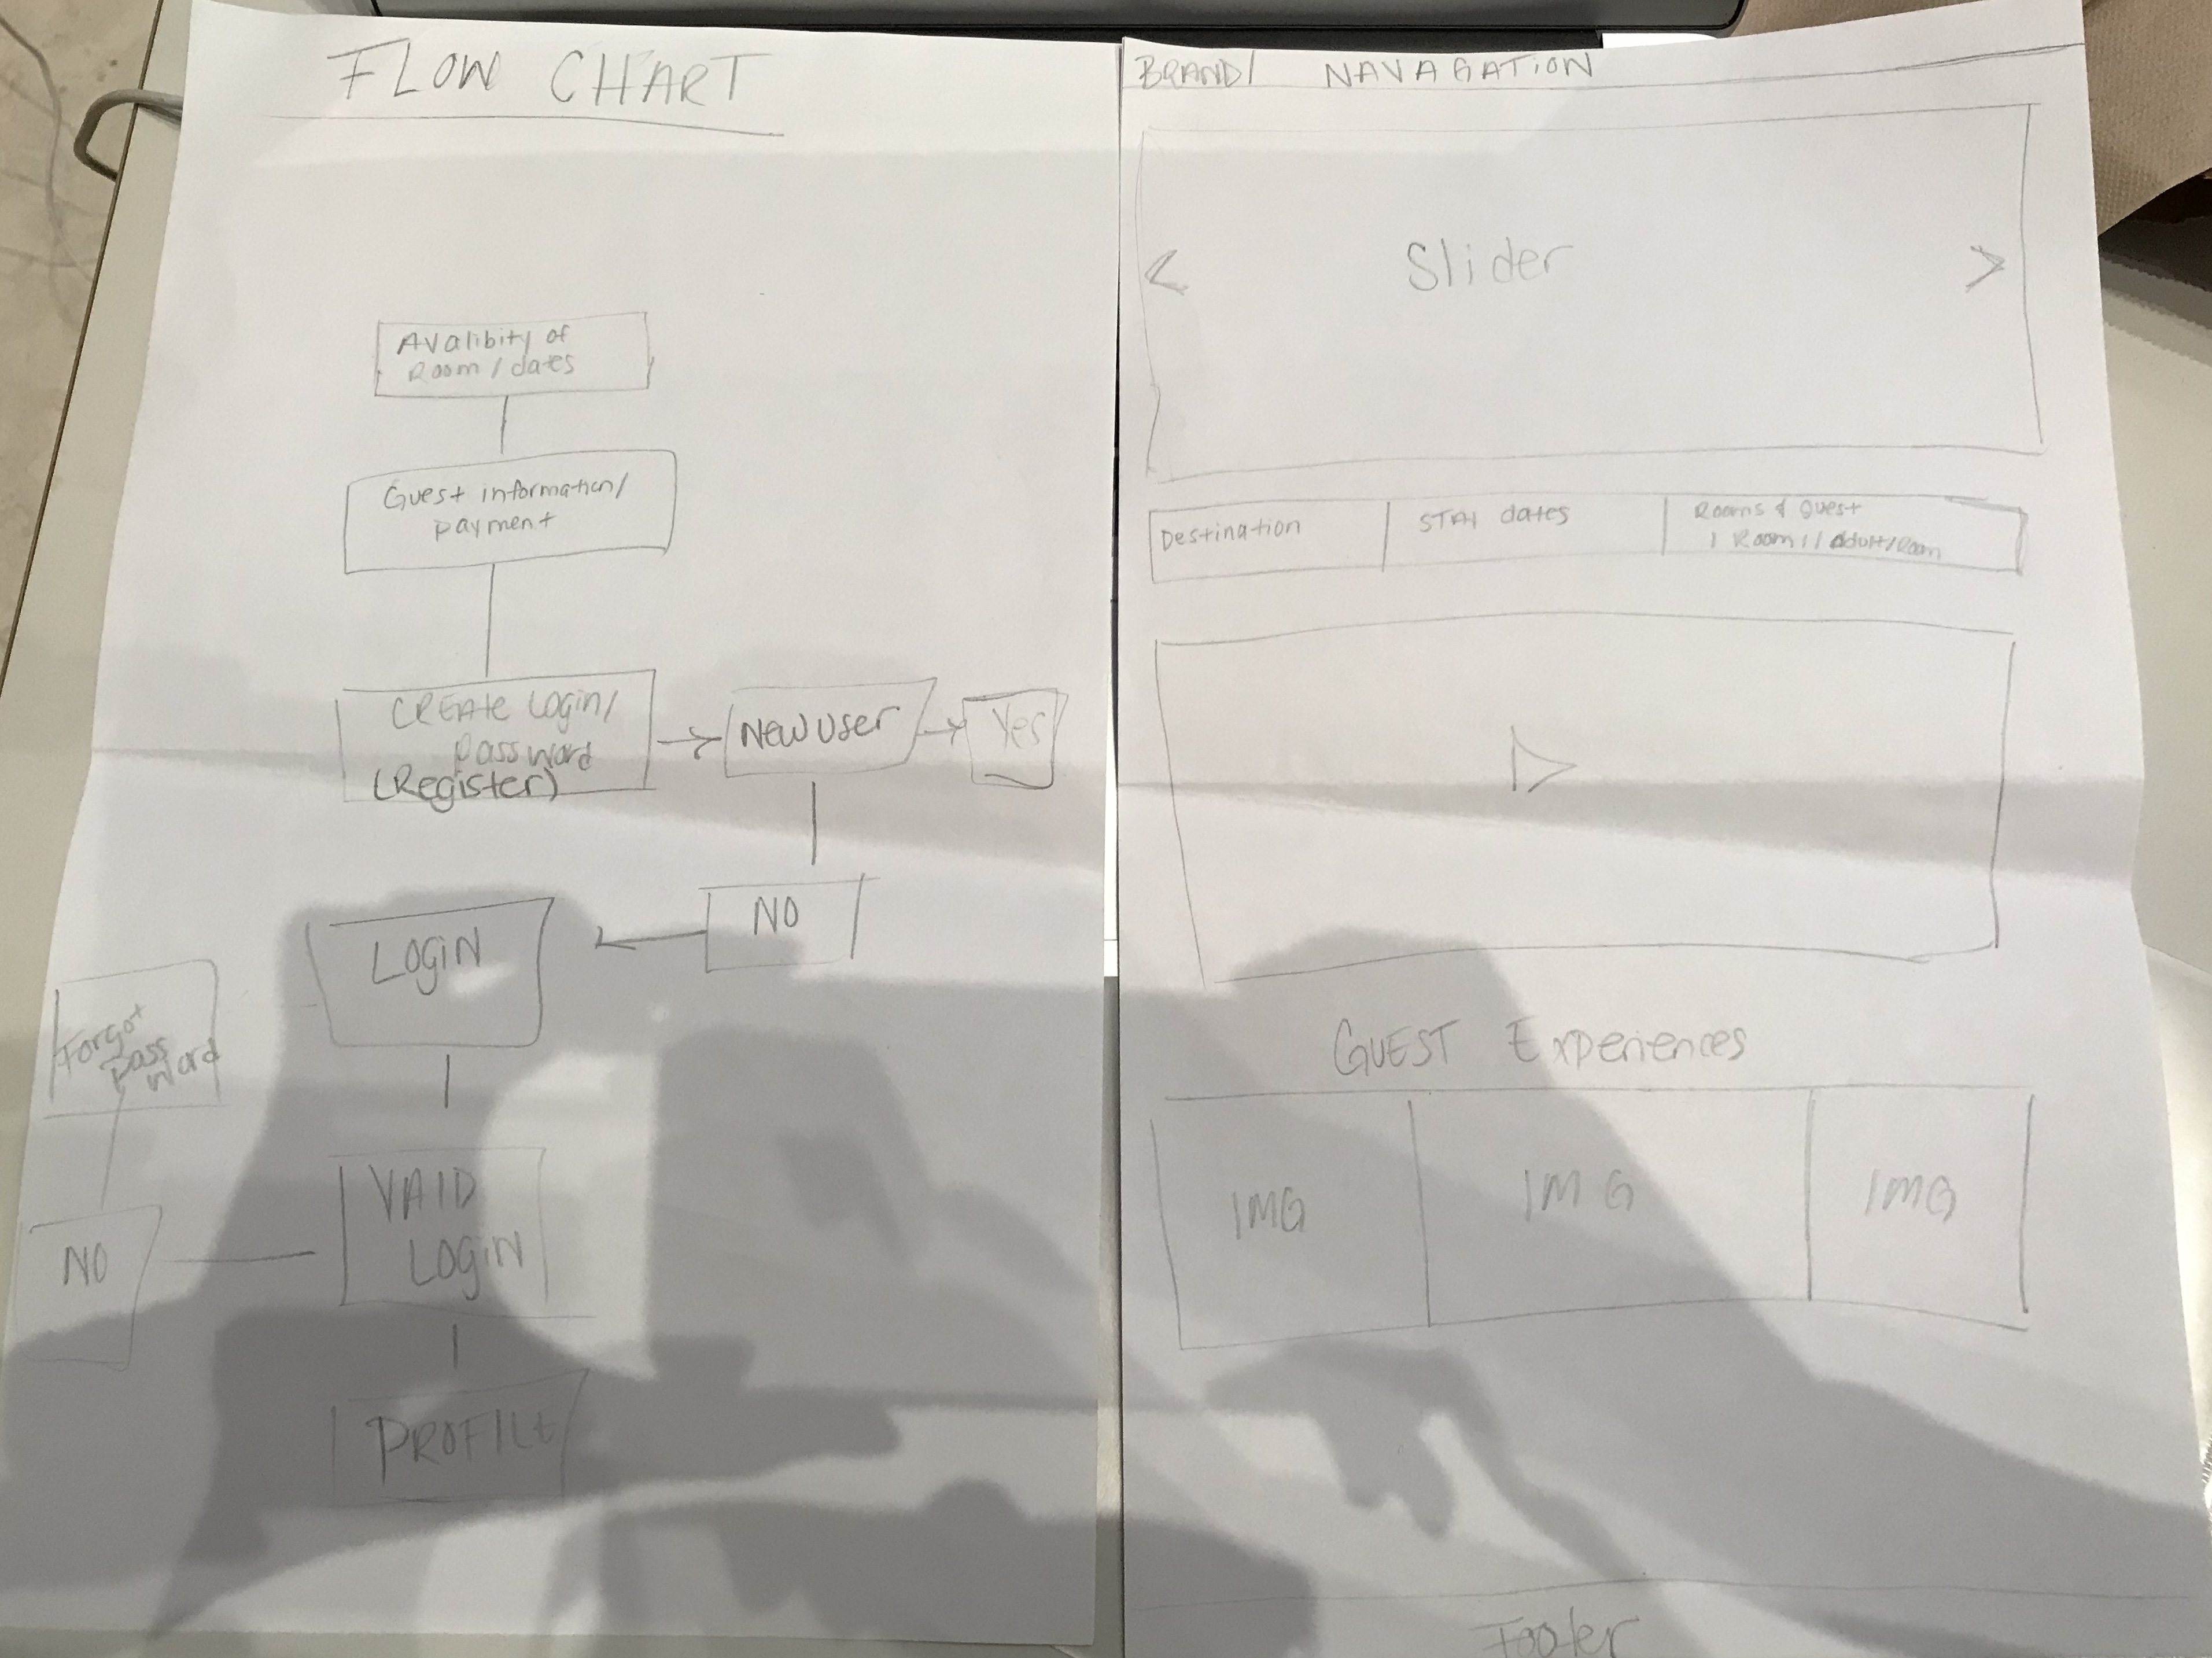 FLOW CHART
Avalibity of
Room / dates
Guest information/
payment
CREATE Login/
password
(Register)
NEW USER
Yes
NO
LOGIN
Forgot
pass
word
VAID
LOGIN
NO
PROFILE
BRAND/ NAVAGATION
< Slider >
Destination
STAY dates
Rooms & Guest
1 Room / 1 Adult/Room
GUEST Experiences
IMG
IMG
IMG
Footer